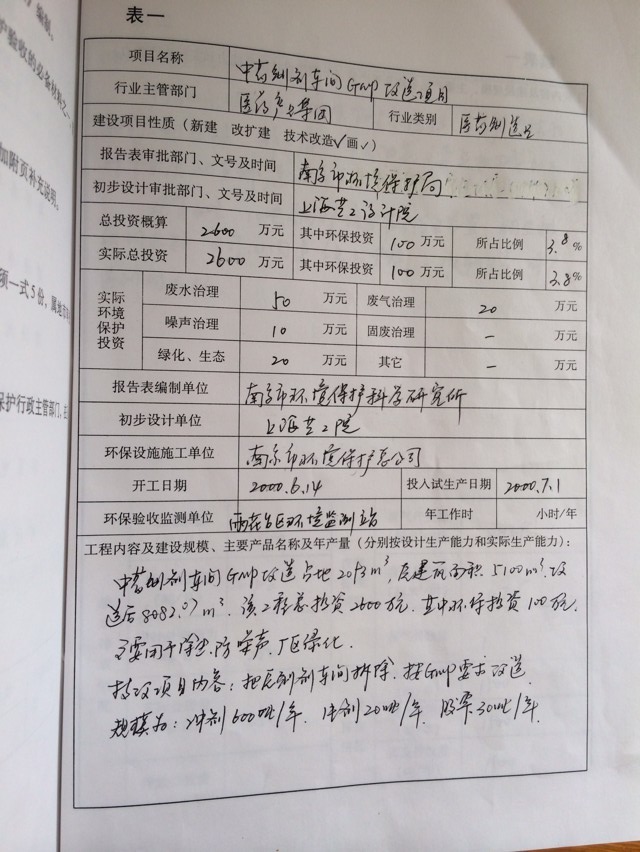 表一
项目名称 中药制剂车间GMP改造项目
行业主管部门 医药产业集团 行业类别 医药制造业
建设项目性质（新建 改扩建 技术改造√画√）
报告表审批部门、文号及时间 南京市环境保护局
初步设计审批部门、文号及时间 上海医工设计院
总投资概算 2600 万元 其中环保投资 100 万元 所占比例 3.8%
实际总投资 2600 万元 其中环保投资 100 万元 所占比例 3.8%
实际环境保护投资
废水治理 50 万元 废气治理 20 万元
噪声治理 10 万元 固废治理 — 万元
绿化、生态 20 万元 其它 — 万元
报告表编制单位 南京市环境保护科学研究所
初步设计单位 上海医工院
环保设施施工单位 南京市环境保护总公司
开工日期 2000.6.14 投入试生产日期 2000.7.1
环保验收监测单位 雨花台区环境监测站 年工作时 小时/年
工程内容及建设规模、主要产品名称及年产量（分别按设计生产能力和实际生产能力）：
中药制剂车间GMP改造占地 原建筑面积5100m²，改
造后8082.07m²。该工程总投资2600万元，其中环保投资100万元，
主要用于除尘、防噪声、厂区绿化。
技改项目内容：把原制剂车间拆除，按GMP要求改造
规模为：冲剂600吨/年， 20吨/年，胶囊30吨/年。
验收的必备材料之一
加附页补充说明。
项一式5份，属地
保护行政主管部门，